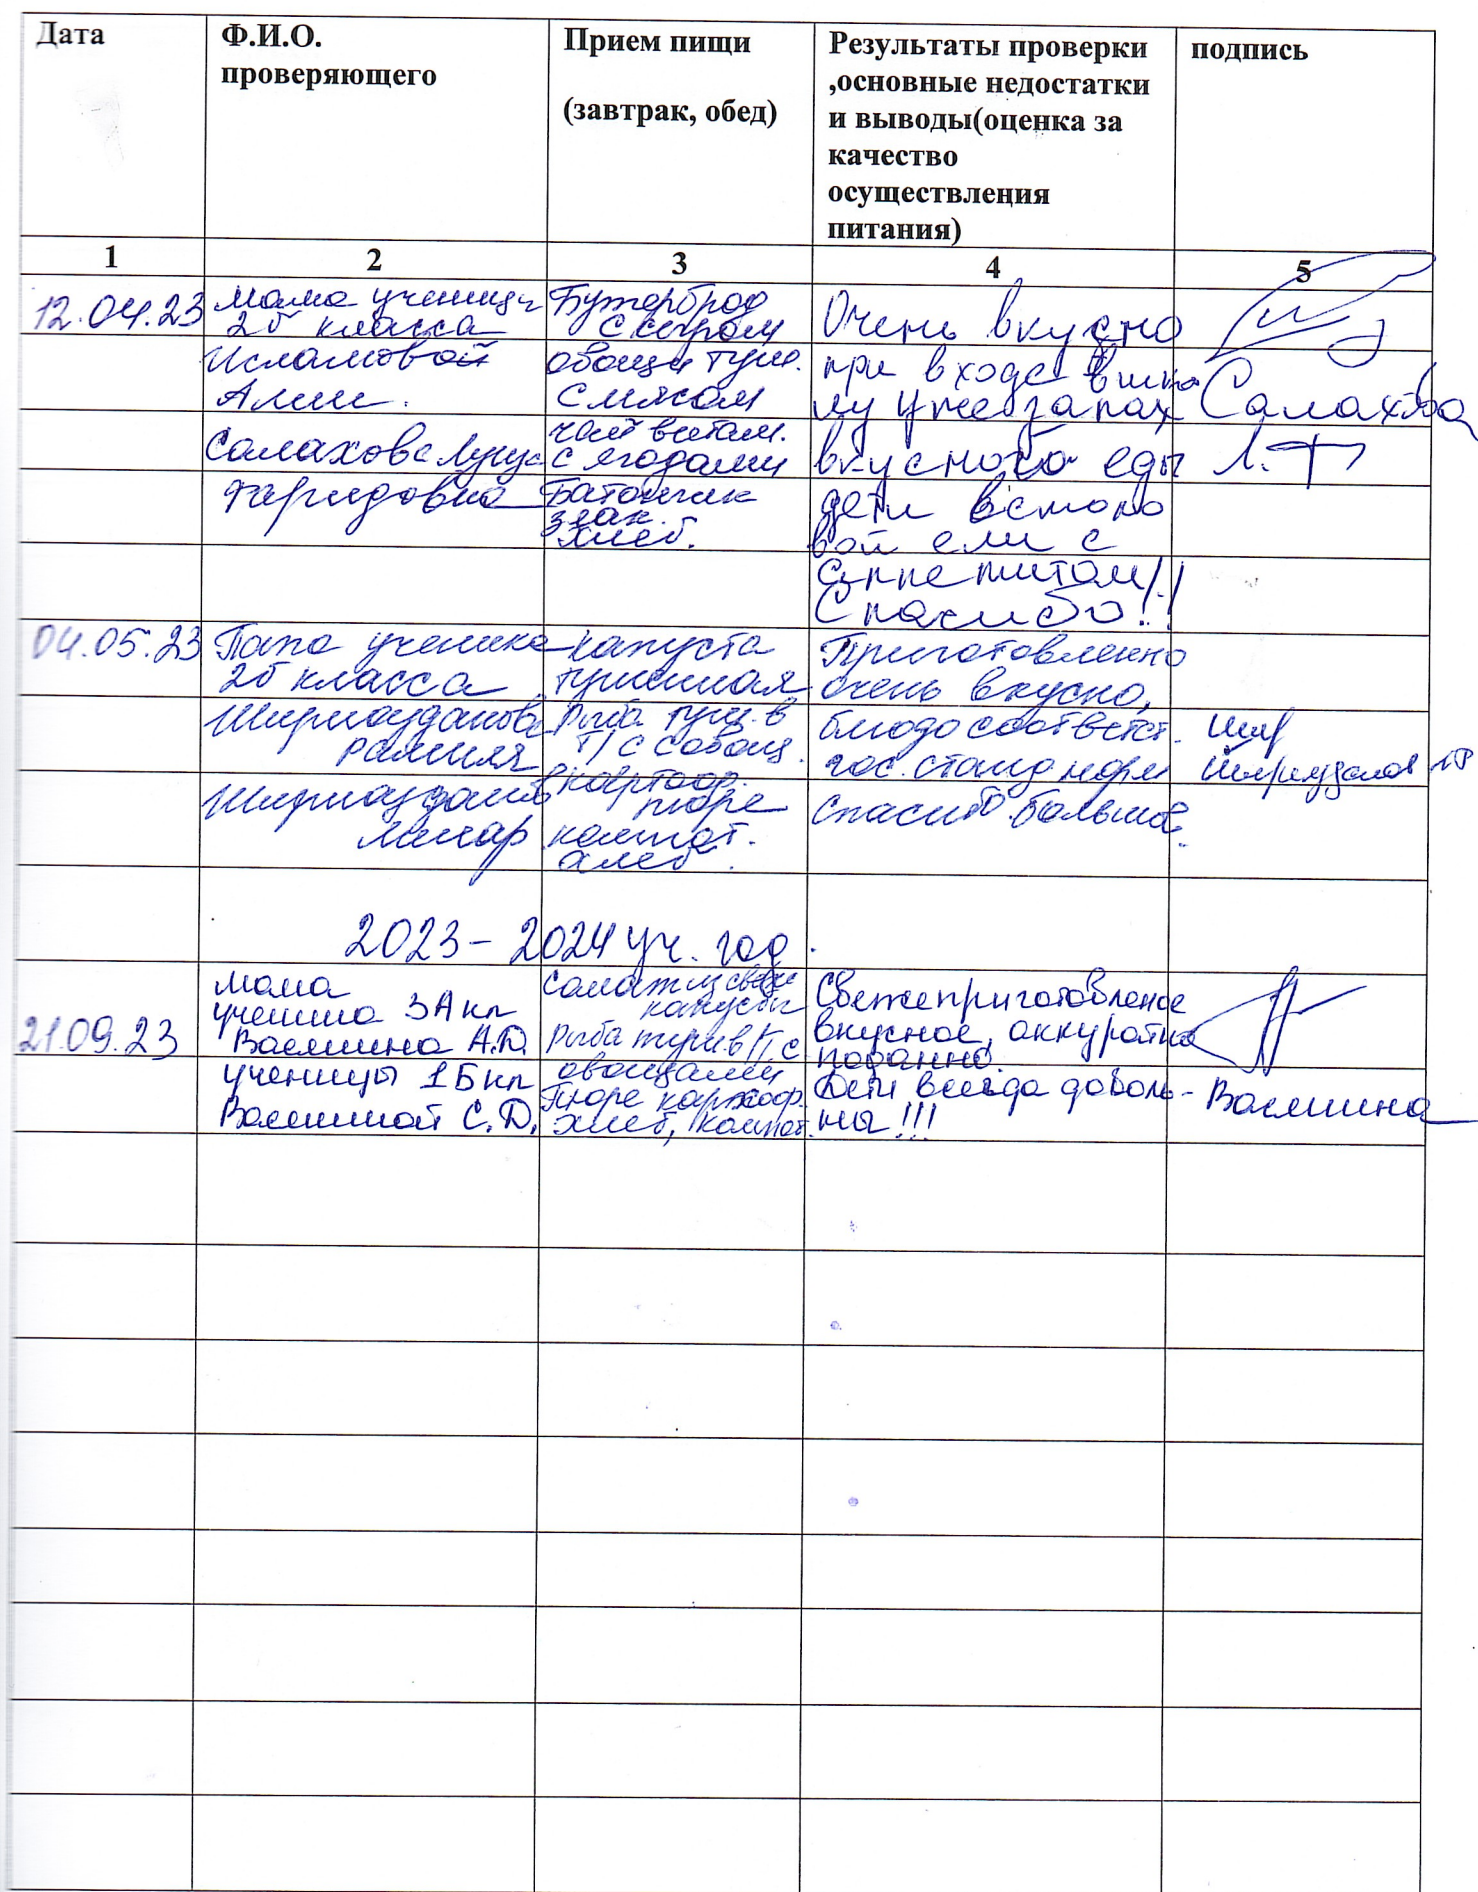 Дата
Ф.И.О.
проверяющего
Прием пищи
(завтрак, обед)
Результаты проверки
,основные недостатки
и выводы(оценка за
качество
осуществления
питания)
подпись
1 2 3 4 5
12.04.23
мама ученицы
2б класса
Исламовой
Алии.
Салахова
Фаридовна
Бутерброд
с сыром
овощи туш.
с мясом
чай витам.
с ягодами
Батончик
злак.
хлеб.
Очень вкусно
при входе в шко
лу уже запах
вкусного еды
дети в столо
вой ели с
аппетитом!!
Спасибо!!
Салахова
Л.Ф
04.05.23
Папа ученика
2б класса
рамиля
капуста
тушенная
Рыба туш. в
т/с с овощ.
картоф.
пюре
компот.
хлеб.
Приготовленно
очень вкусно,
блюдо соответст.
гос. станд норм
спасибо большое.
2023-2024 уч. год.
21.09.23
мама
ученика 3А кл
Валишина А.Д.
ученицы 1Б кл
Валишиной С.Д.
Салат из свеж
капусты
Рыба туш. в т/с
овощами
Пюре картоф.
хлеб, компот.
Свежеприготовленое
вкусное, аккуратно
поданно.
Дети всегда доволь-
ны!!!
Валишина